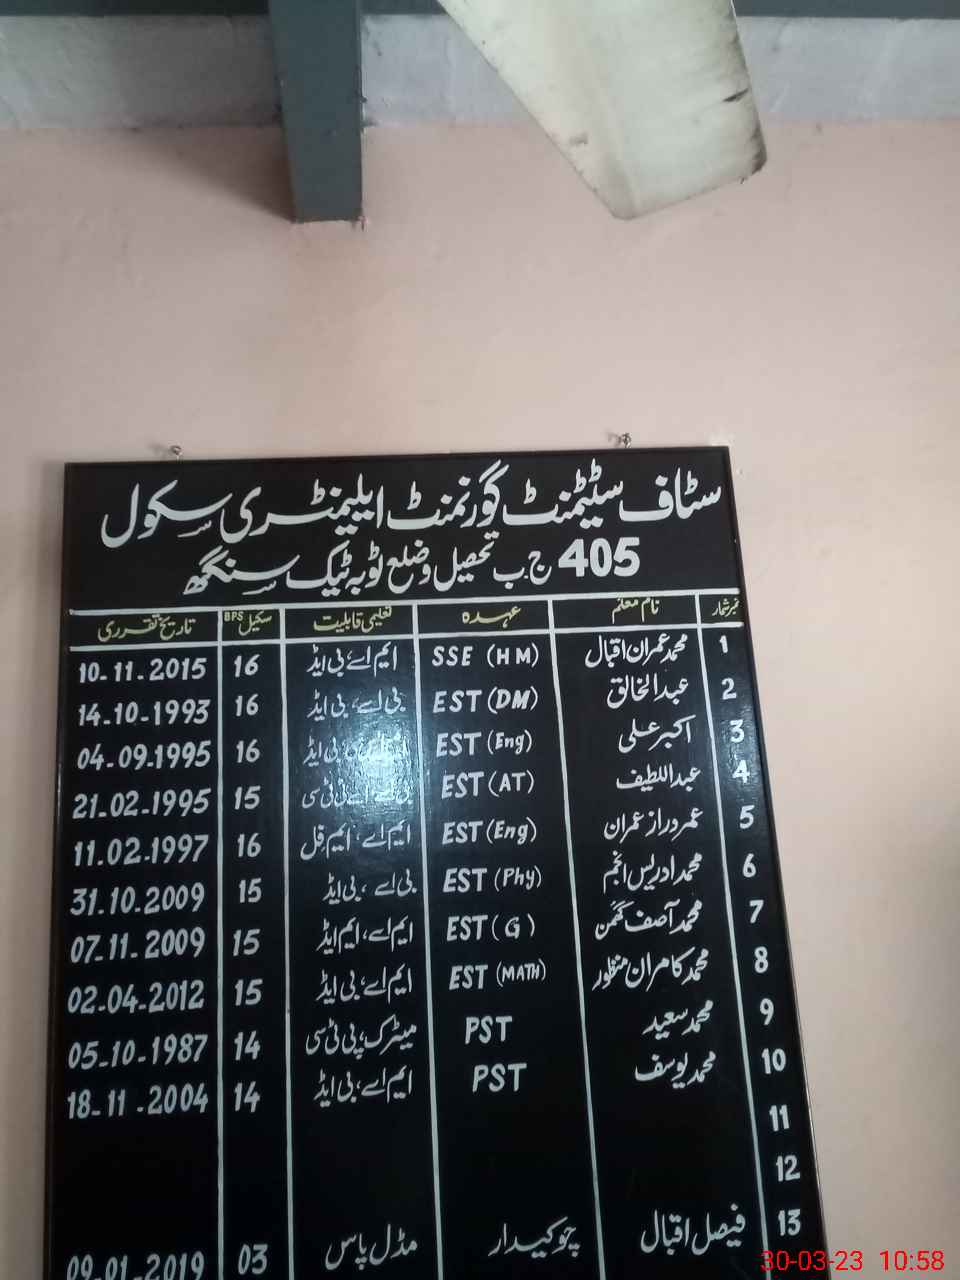 سٹاف سٹیٹمنٹ گورنمنٹ ایلیمنٹری سکول
405 ج ب تحصیل و ضلع ٹوبہ ٹیک سنگھ
نمبر شمار نام معلم عہدہ تعلیمی قابلیت سکیل BPS تاریخ تقرری
1 محمد عمران اقبال SSE (HM) ایم اے، بی ایڈ 16 10-11-2015
2 عبدالخالق EST (DM) بی اے، بی ایڈ 16 14-10-1993
3 اکبر علی EST (Eng) بی ایڈ 16 04-09-1995
4 عبداللطیف EST (AT) 15 21-02-1995
5 عمر دراز عمران EST (Eng) ایم اے، ایم فل 16 11-02-1997
6 محمد ادریس انجم EST (Phy) بی اے، بی ایڈ 15 31-10-2009
7 محمد آصف گھمن EST (G) ایم اے، ایم ایڈ 15 07-11-2009
8 محمد کامران منظور EST (MATH) ایم اے، بی ایڈ 15 02-04-2012
9 محمد سعید PST میٹرک، پی ٹی سی 14 05-10-1987
10 محمد یوسف PST ایم اے، بی ایڈ 14 18-11-2004
11
12
13 فیصل اقبال چوکیدار مڈل پاس 03 09-01-2019
30-03-23 10:58